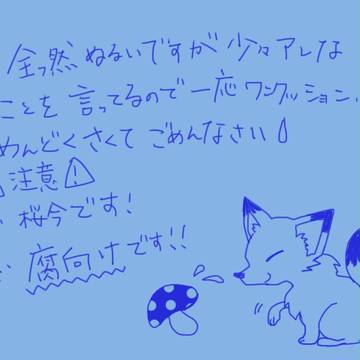 全っ然 ぬるいですが 少々アレな
ことを 言ってるので 一応 ワンクッション、
めんどくさくて ごめんなさい
注意⚠
桜今です!
腐向けです!!